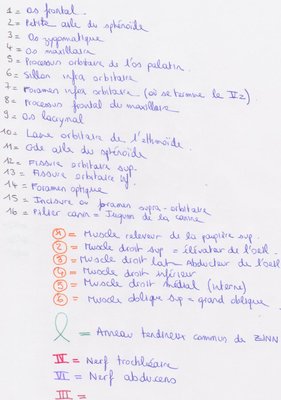 1 = Os frontal.
2 = Petite aile du sphénoïde
3 = Os zygomatique
4 = Os maxillaire
5 = Processus orbitaire de l'os palatin.
6 = Sillon infra orbitaire
7 = Foramen infra orbitaire (où se termine le V2)
8 = Processus frontal du maxillaire
9 = Os lacrymal
10 = Lame orbitaire de l'ethmoïde.
11 = Gde aile du sphénoïde.
12 = Fissure orbitaire sup.
13 = Fissure orbitaire inf
14 = Foramen optique
15 = Incisure ou foramen supra-orbitaire
16 = Pilier canin = Jugum de la canine
1 = Muscle releveur de la paupière sup.
2 = Muscle droit sup = élévateur de l'oeil
3 = Muscle droit lat = Abducteur de l'oeil
4 = Muscle droit inférieur
5 = Muscle droit médial (interne)
6 = Muscle oblique sup = grand oblique.
= Anneau tendineux commun de ZINN
IV = Nerf trochléaire
VI = Nerf abducens
III =